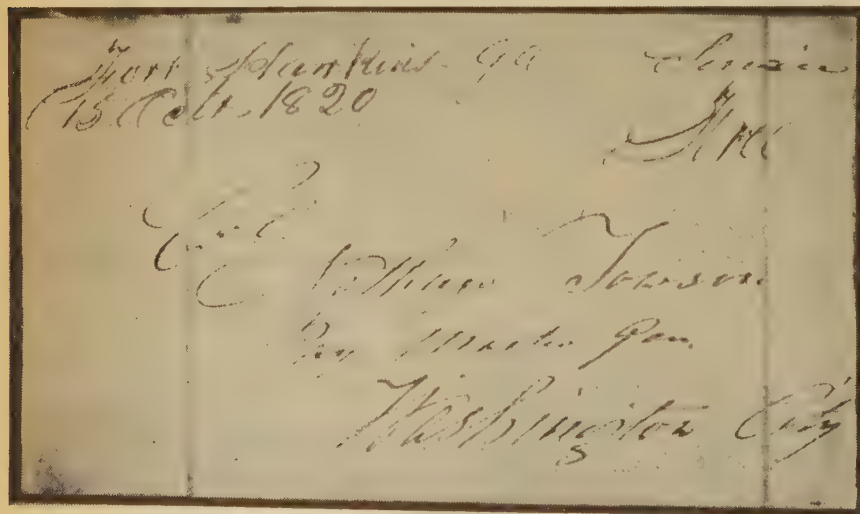 Fort Hawkins Ga
15 Oct. 1820
Free
Col.
Nathan Towson
Pay Master Gen.
Washington City